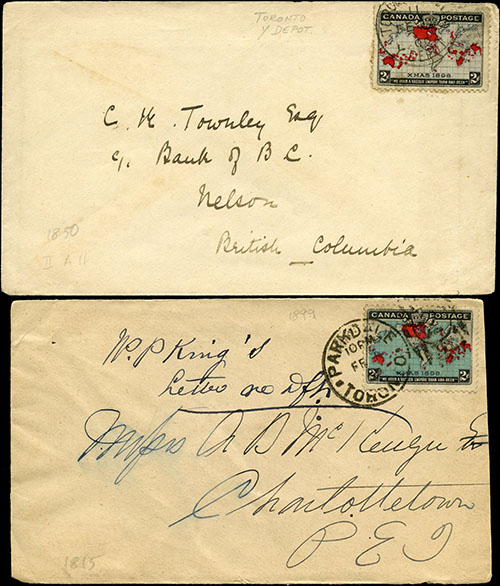 TORONTO
Y DEPOT.
CANADA POSTAGE
2c XMAS 1898 2c
"WE HOLD A VASTER EMPIRE THAN HAS BEEN"
C. H. Townley Esq
c/o Bank of B C.
Nelson
British Columbia
1850
II A 11
1899
CANADA POSTAGE
2c XMAS 1898 2c
"WE HOLD A VASTER EMPIRE THAN HAS BEEN"
PARKDALE
10 PM
FE
TORO
Wm P King's
Letter no
A B Mc
Charlottetown
P E I
1815